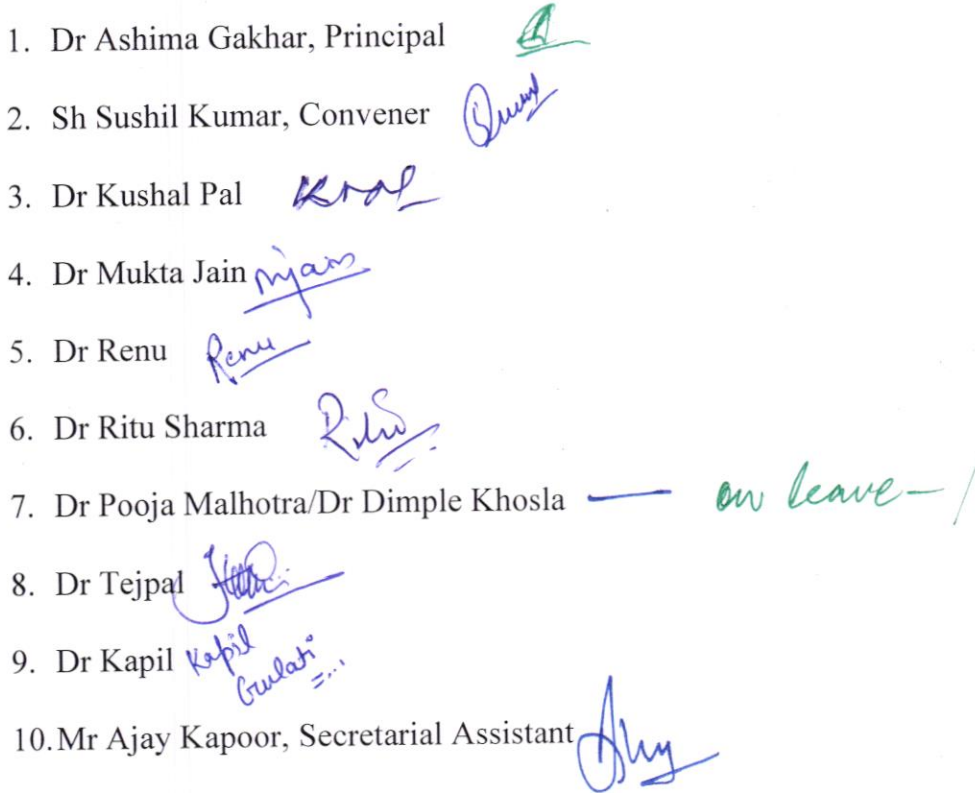 1. Dr Ashima Gakhar, Principal
2. Sh Sushil Kumar, Convener
3. Dr Kushal Pal
4. Dr Mukta Jain mjain
5. Dr Renu Renu
6. Dr Ritu Sharma Ritu
7. Dr Pooja Malhotra/Dr Dimple Khosla — on leave
8. Dr Tejpal
9. Dr Kapil Kapil
Gulati
10. Mr Ajay Kapoor, Secretarial Assistant